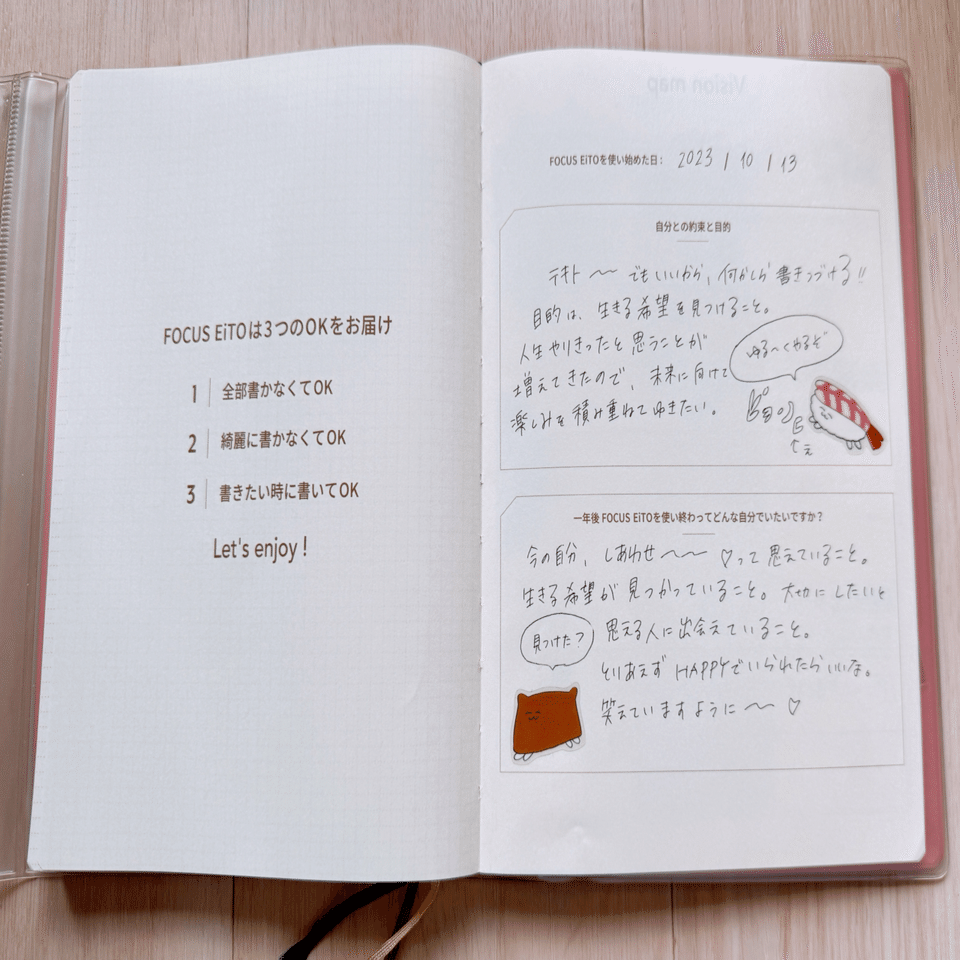 FOCUS EiTOは3つのOKをお届け
1 全部書かなくてOK
2 綺麗に書かなくてOK
3 書きたい時に書いてOK
Let's enjoy !
Vision map
FOCUS EiTOを使い始めた日: 2023 / 10 / 13
自分との約束と目的
テキト〜〜でもいいから、何かしら書きつづける!!
目的は、生きる希望を見つけること。
人生やりきったと思うことが
増えてきたので、未来に向けて
楽しみを積み重ねてゆきたい。
ゆる〜くやるぞ
一年後 FOCUS EiTOを使い終わってどんな自分でいたいですか?
今の自分、しあわせ〜〜♡って思えていること。
生きる希望が見つかっていること。大切にしたいと
思える人に出会えていること。
とりあえず HAPPYでいられたらいいな。
笑えていますように〜♡
見つけた?